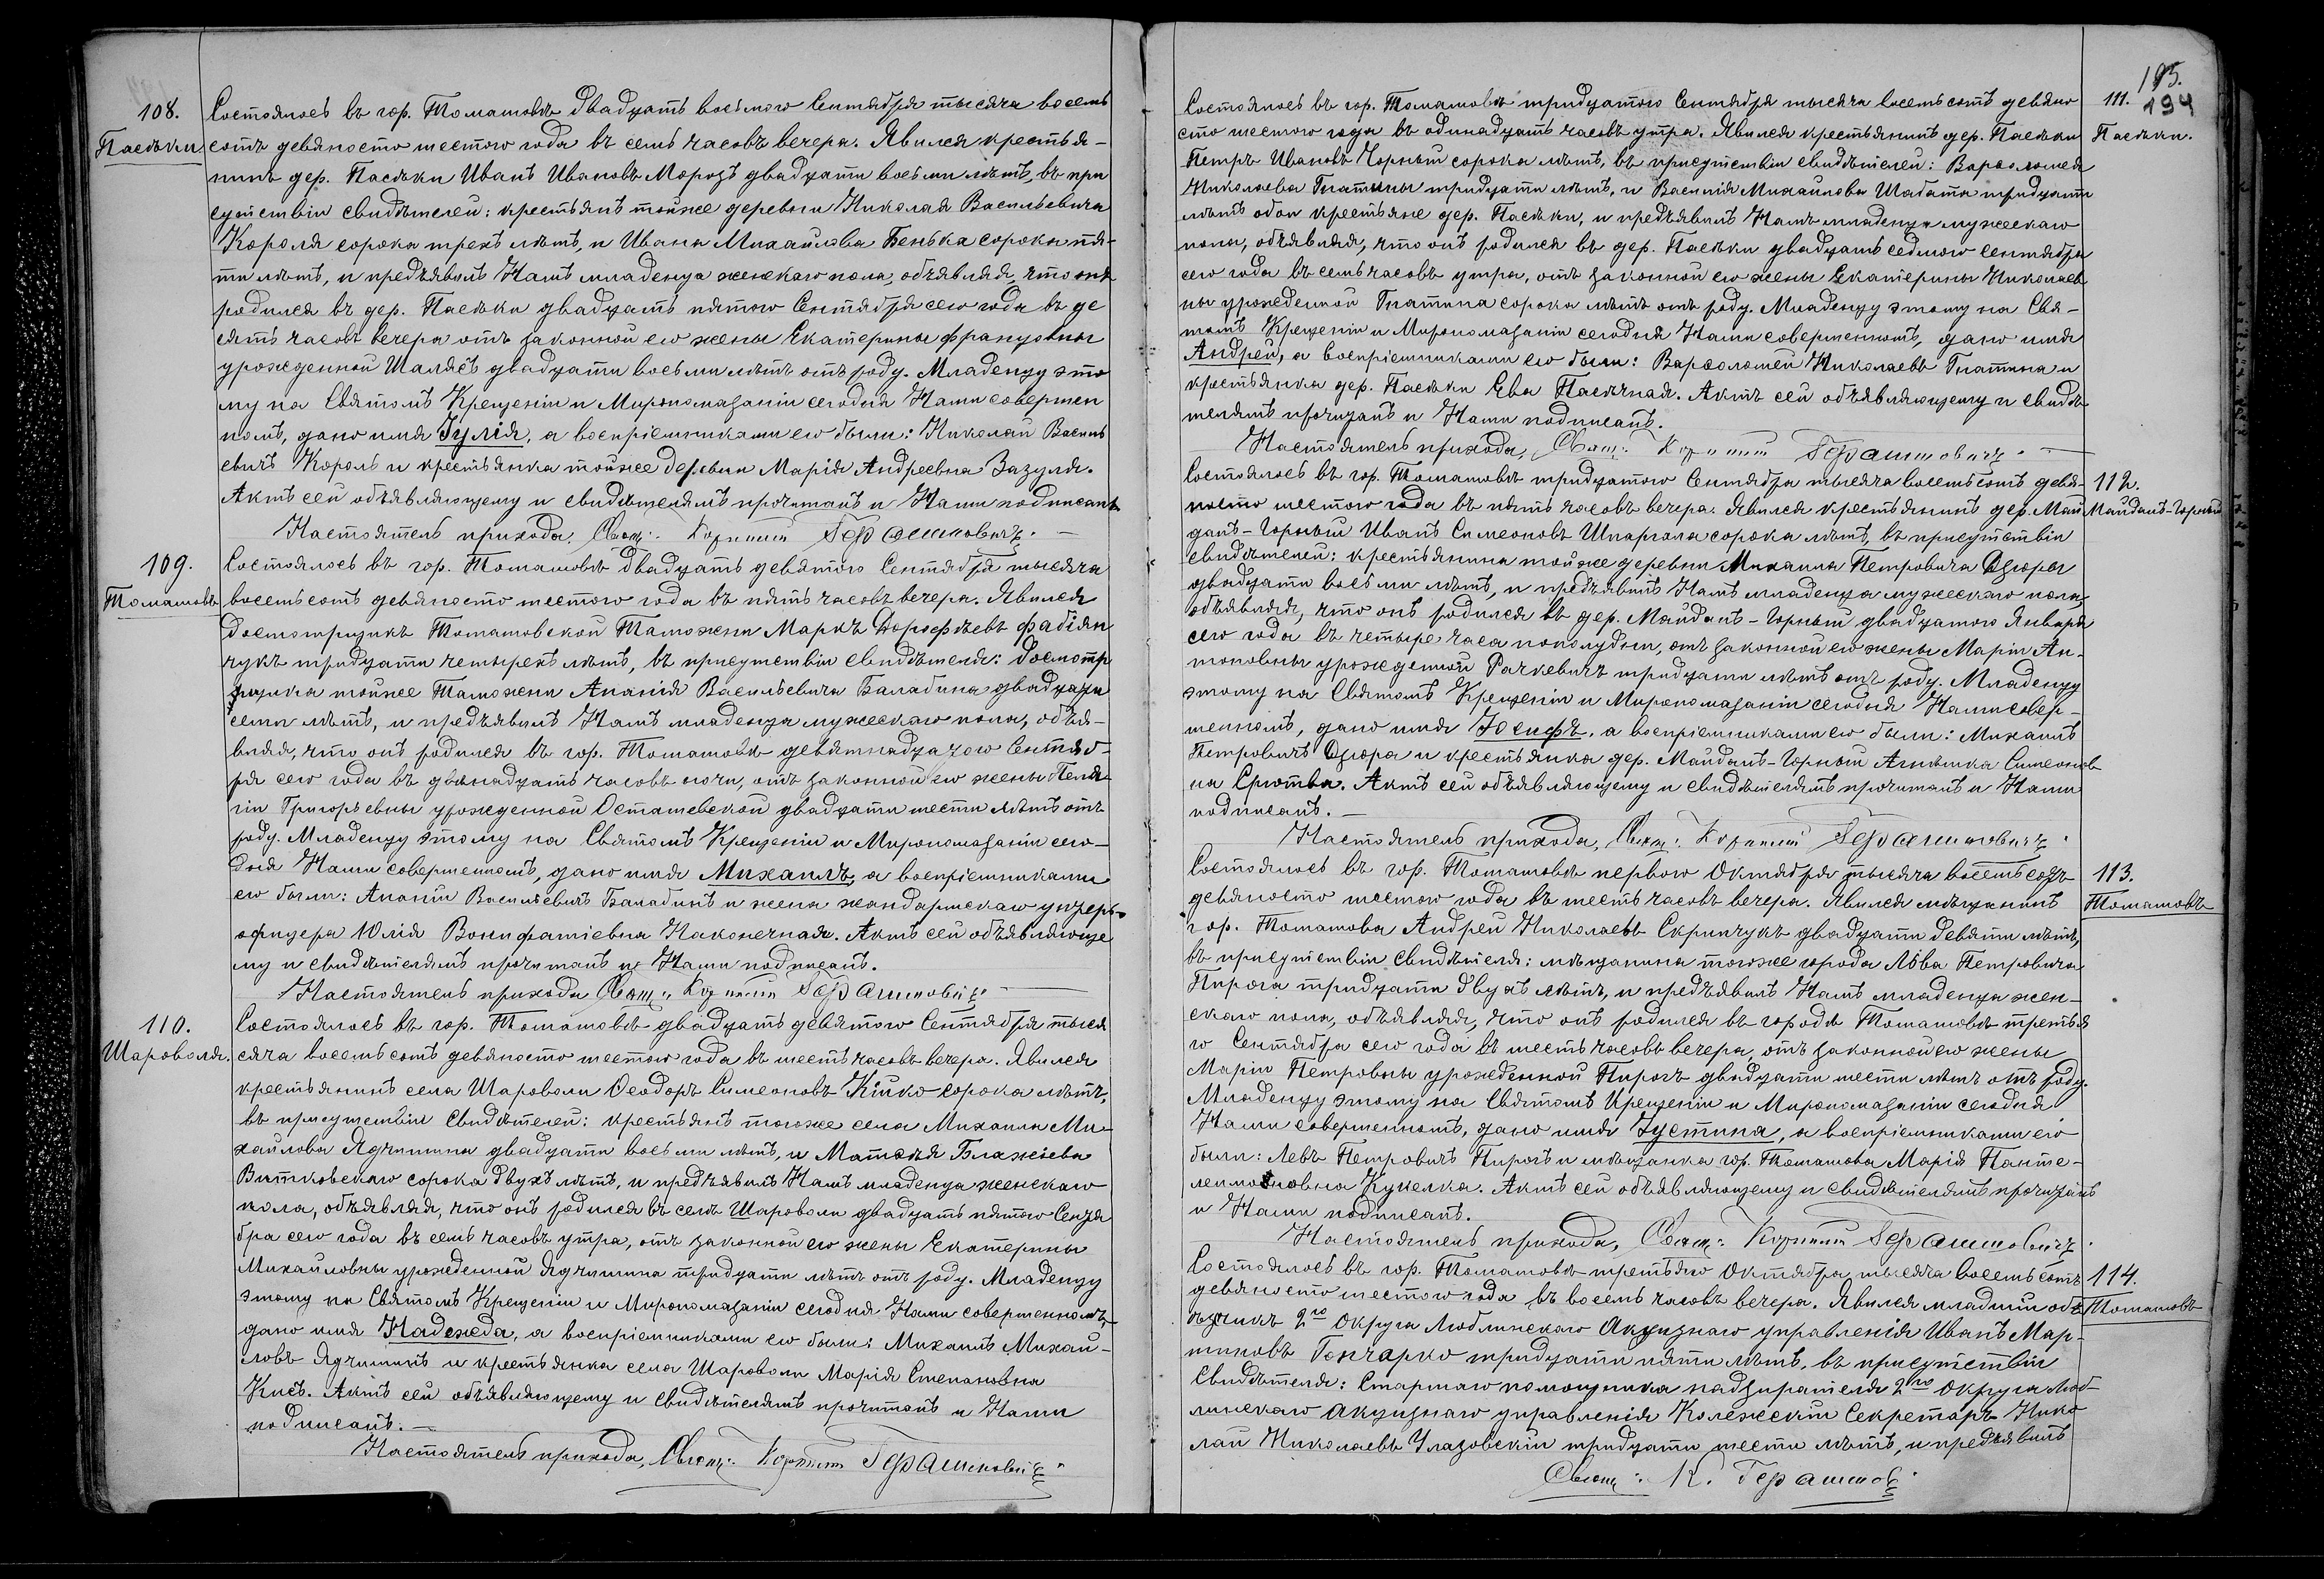 108.
Пасѣки
Состоялось въ гор. Томашовѣ двадцать восьмого Сентября тысяча восемь
сотъ девяносто шестого года въ семь часовъ вечера. Явился крестья-
нинъ дер. Пасѣки Иванъ Ивановъ Морозъ двадцати восьми лѣтъ, въ при
сутствіи свидѣтелей: крестьянъ тойже деревни Николая Васильевича
Короля сорока трехъ лѣтъ, и Ивана Михайлова Бенька сорока пя-
ти лѣтъ, и предъявилъ Намъ младенца женскаго пола, объявляя, что онъ
родился въ дер. Пасѣки двадцать пятого Сентября сего года въ де
сять часовъ вечера отъ законной его жены Екатерины Францовны
урожденной Шалясъ двадцати восьми лѣтъ отъ роду. Младенцу это
му на Святомъ Крещеніи и Миропомазаніи сегодня Нами совершен
номъ, дано имя Іулія, а воспріемниками его были: Николай Василь
евичъ Король и крестьянка тойже деревни Марія Андреевна Зазуля.
Актъ сей объявляющему и свидѣтелямъ прочитанъ и Нами подписанъ
Настоятель прихода, Свящ: Корнилій Герашимовичъ.
109.
Томашовъ
Состоялось въ гор. Томашовѣ двадцать девятого Сентября тысяча
восемьсотъ девяносто шестого года въ пять часовъ вечера. Явился
досмотрщикъ Томашовской Таможни Маркъ Дорофѣевъ Фабіян
чукъ тридцати четырехъ лѣтъ, въ присутствіи свидѣтеля: досмотр
щика тойже Таможни Ананія Васильевича Баладина двадцати
семи лѣтъ, и предъявилъ Намъ младенца мужескаго пола, объя-
вляя, что онъ родился въ гор. Томашовѣ девятнадцатого Сентяб-
ря сего года въ двѣнадцать часовъ ночи, отъ законной его жены Пела
гіи Григорьевны урожденной Осташевской двадцати шести лѣтъ отъ
роду. Младенцу этому на Святомъ Крещеніи и Миропомазаніи сего-
дня Нами совершенномъ, дано имя Михаилъ, а воспріемниками
его были: Ананій Васильевичъ Баладинъ и жена жандармскаго унтеръ-
офицера Юлія Вонифатіевна Наконечная. Актъ сей объявляюще
му и свидѣтелямъ прочитанъ и Нами подписанъ.
Настоятель прихода Свящ: Корнилій Герашимовичъ
110.
Шароволя.
Состоялось въ гор. Томашовѣ двадцать девятого Сентября тыся
сяча восемьсотъ девяносто шестого года въ шесть часовъ вечера. Явился
крестьянинъ села Шароволи Ѳеодоръ Симеоновъ Кійко сорока лѣтъ,
въ присутствіи свидѣтелей: крестьянъ тогоже села Михаила Ми-
хайлова Ядчишина двадцати восьми лѣтъ, и Матвѣя Блажіева
Витковскаго сорока двухъ лѣтъ, и предъявилъ Намъ младенца женскаго
пола, объявляя, что онъ родился въ селѣ Шароволи двадцать пятого Сентя
бра сего года въ семь часовъ утра, отъ законной его жены Екатерины
Михайловны урожденной Ядчишина тридцати лѣтъ отъ роду. Младенцу
этому на Святомъ Крещеніи и Миропомазаніи сегодня Нами совершенномъ,
дано имя Надежда, а воспріемниками его были: Михаилъ Михай-
ловъ Ядчишинъ и крестьянка села Шароволи Марія Степановна
Кисъ. Актъ сей объявляющему и свидѣтелямъ прочитанъ и Нами
подписанъ.
Настоятель прихода, Свящ: Корнилій Герашимовичъ
195.
194
111.
Пасѣки.
Состоялось въ гор. Томашовѣ тридцатого Сентября тысяча восемьсотъ девяно
сто шестого года въ одинадцать часовъ утра. Явился крестьянинъ дер. Пасѣки
Петръ Ивановъ Чорный сорока лѣтъ, въ присутствіи свидѣтелей: Варѳоломея
Николаева Гнатины тридцати лѣтъ, и Василія Михайлова Шабата тридцати
лѣтъ обои крестьяне дер. Пасѣки, и предъявилъ Намъ младенца мужескаго
пола, объявляя, что онъ родился въ дер. Пасѣки двадцать седмого Сентября
сего года въ семь часовъ утра, отъ законной его жены Екатерины Николаев
ны урожденной Гнатина сорока лѣтъ отъ роду. Младенцу этому на Свя-
томъ Крещеніи и Миропомазаніи сегодня Нами совершенномъ, дано имя
Андрей, а воспріемниками его были: Варѳоломей Николаевъ Гнатина и
крестьянка дер. Пасѣки Ева Пасѣчная. Актъ сей объявляющему и свидѣ
телямъ прочитанъ и Нами подписанъ.
Настоятель прихода, Свящ: Корнилій Герашимовичъ.
112.
Майданъ-Горный
Состоялось въ гор. Томашовѣ тридцатого Сентября тысяча восемьсотъ девя-
носто шестого года въ пять часовъ вечера. Явился крестьянинъ дер. Май
данъ-Горный Иванъ Симеоновъ Шпаргола сорока лѣтъ, въ присутствіи
свидѣтелей: крестьянина тойже деревни Михаила Петровича Дзюры
двадцати восьми лѣтъ, и предъявилъ Намъ младенца мужескаго пола,
объявляя, что онъ родился въ дер. Майданъ-Горный двадцатого Января
сего года въ четыре часа пополудни, отъ законной его жены Маріи Ан-
тоновны урожденной Рачкевичъ тридцати лѣтъ отъ роду. Младенцу
этому на Святомъ Крещеніи и Миропомазаніи сегодня Нами совер-
шенномъ, дано имя Іосифъ, а воспріемниками его были: Михаилъ
Петровичъ Дзюра и крестьянка дер. Майданъ-Горный Агнешка Симеонов
на Сротва. Актъ сей объявляющему и свидѣтелямъ прочитанъ и Нами
подписанъ.
Настоятель прихода, Свящ: Корнилій Герашимовичъ.
113.
Томашовъ
Состоялось въ гор. Томашовѣ первого Октября тысяча восемьсотъ
девяносто шестого года въ шесть часовъ вечера. Явился мѣщанинъ
гор. Томашова Андрей Николаевъ Скрипчукъ двадцати девяти лѣтъ,
въ присутствіи свидѣтеля: мѣщанина тогоже города Льва Петровича
Пирога тридцати двухъ лѣтъ, и предъявилъ Намъ младенца жен-
скаго пола, объявляя, что онъ родился въ городѣ Томашовѣ третья
го Сентября сего года въ шесть часовъ вечера, отъ законной его жены
Маріи Петровны урожденной Пирогъ двадцати шести лѣтъ отъ роду.
Младенцу этому на Святомъ Крещеніи и Миропомазаніи сегодня
Нами совершенномъ, дано имя Іустина, а воспріемниками его
были: Левъ Петровичъ Пирогъ и мѣщанка гор. Томашова Марія Панте-
леимоновна Кукелка. Актъ сей объявляющему и свидѣтелямъ прочитанъ
и Нами подписанъ.
Настоятель прихода, Свящ: Корнилій Герашимовичъ.
114.
Томашовъ
Состоялось въ гор. Томашовѣ третьяго Октября тысяча восемьсотъ
девяносто шестого года въ восемь часовъ вечера. Явился младшій объ
ѣздчикъ 2го Округа Люблинскаго Акцизнаго управленія Иванъ Мар-
тиновъ Гончарко тридцати пяти лѣтъ, въ присутствіи
свидѣтеля: Старшаго помощника надзирателя 2го Округа Люб-
линскаго Акцизнаго управленія Колежскій Секретарь Нико
лай Николаевъ Улазовскій тридцати шести лѣтъ, и предъявилъ
Свящ: К. Герашимов